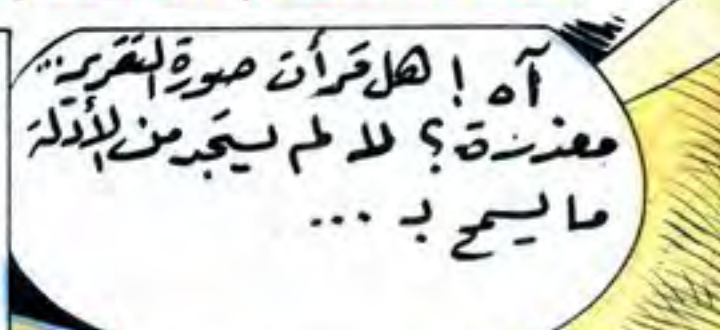 آه ! هل قرأت صورة التقرير...
معذرة ؟ لا لم يستجد من الأدلة
ما يسمح بـ ...